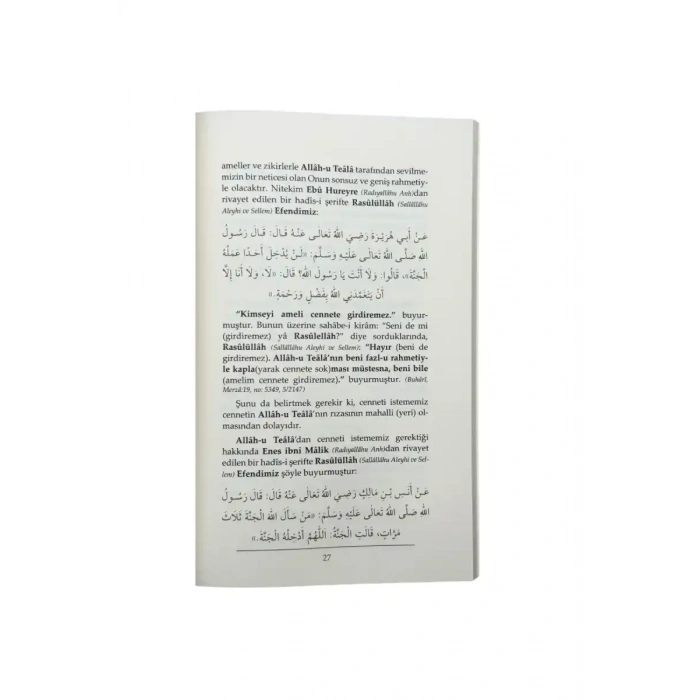 ameller ve zikirlerle Allâh-u Teâlâ tarafından sevilme-
mizin bir neticesi olan Onun sonsuz ve geniş rahmetiy-
le olacaktır. Nitekim Ebû Hureyre (Radıyallâhu Anh)dan
rivayet edilen bir hadîs-i şerifte Rasûlüllâh (Sallâllâhu
Aleyhi ve Sellem) Efendimiz:
عَنْ أَبِي هُرَيْرَةَ رَضِيَ اللهُ تَعَالَى عَنْهُ قَالَ: قَالَ رَسُولُ
اللهِ صَلَّى اللهُ تَعَالَى عَلَيْهِ وَسَلَّمَ: «لَنْ يُدْخِلَ أَحَدًا عَمَلُهُ
الْجَنَّةَ»، قَالُوا: وَلَا أَنْتَ يَا رَسُولَ اللهِ؟ قَالَ: «لَا، وَلَا أَنَا إِلَّا
أَنْ يَتَغَمَّدَنِيَ اللهُ بِفَضْلٍ وَرَحْمَةٍ.»
“Kimseyi ameli cennete girdiremez.” buyur-
muştur. Bunun üzerine sahâbe-i kirâm: “Seni de mi
(girdiremez) yâ Rasûlellâh?” diye sorduklarında,
Rasûlüllâh (Sallâllâhu Aleyhi ve Sellem): “Hayır (beni de
girdiremez). Allâh-u Teâlâ’nın beni fazl-u rahmetiy-
le kapla(yarak cennete sok)ması müstesna, beni bile
(amelim cennete girdiremez).” buyurmuştur. (Buhârî,
Merzâ:19, no: 5349, 5/2147)
Şunu da belirtmek gerekir ki, cenneti istememiz
cennetin Allâh-u Teâlâ’nın rızasının mahalli (yeri) ol-
masından dolayıdır.
Allâh-u Teâlâ’dan cenneti istememiz gerektiği
hakkında Enes ibni Mâlik (Radıyallâhu Anh)dan rivayet
edilen bir hadîs-i şerifte Rasûlüllâh (Sallâllâhu Aleyhi ve Sel-
lem) Efendimiz şöyle buyurmuştur:
عَنْ أَنَسِ بْنِ مَالِكٍ رَضِيَ اللهُ تَعَالَى عَنْهُ قَالَ: قَالَ رَسُولُ
اللهِ صَلَّى اللهُ تَعَالَى عَلَيْهِ وَسَلَّمَ: «مَنْ سَأَلَ اللهَ الْجَنَّةَ ثَلَاثَ
مَرَّاتٍ، قَالَتِ الْجَنَّةُ: اَللّٰهُمَّ أَدْخِلْهُ الْجَنَّةَ.»
27